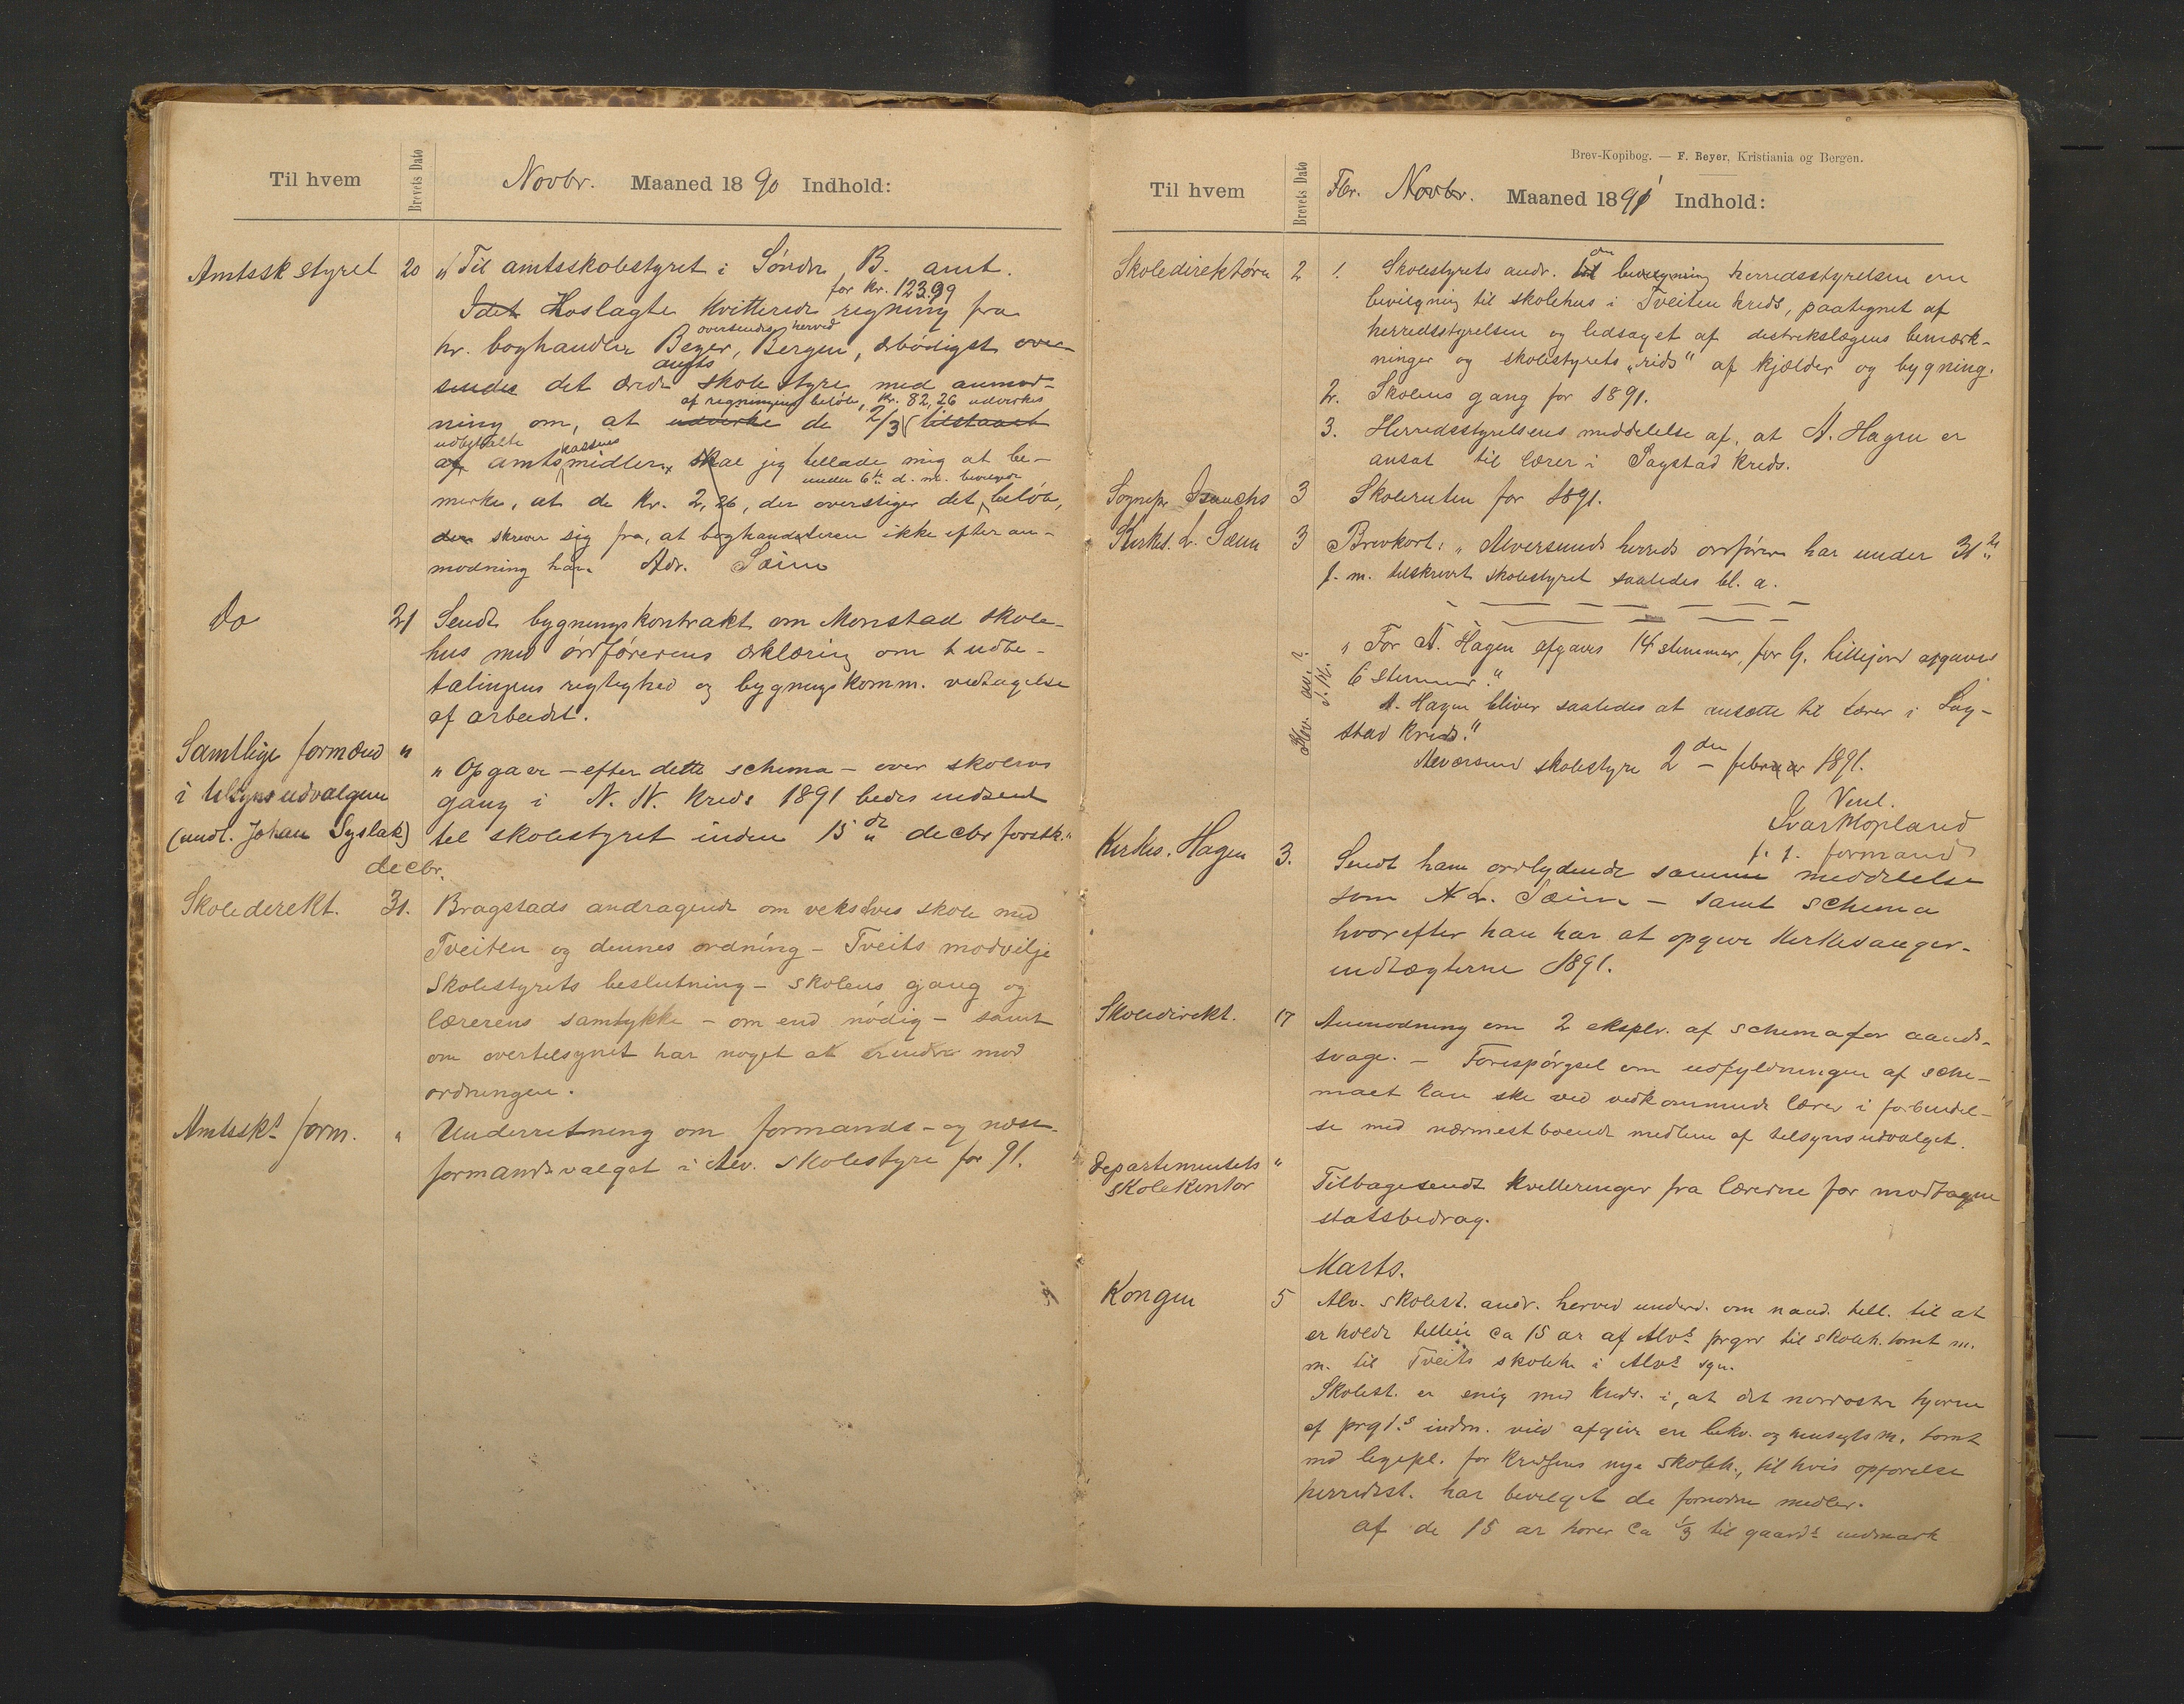 Til hvem
Brevets Dato
Novbr. Maaned 1890 Indhold:
Amtssk styret 20 „Til amtsskolestyret i Søndr B. amt.
for Kr. 123,39
Idet Hoslagte Kvitterede regning fra
oversendes herved
hr. boghandler Beyer, Bergen, ærbødigst over-
amts
sendes det ærede skolestyre med anmod-
af regningens beløb, Kr. 82,26 udvirkes
ning om, at udvirke de 2/3 tilstaaet
udbetalte kassens
af amts midler, skal jeg tillade mig at be-
under 6te d. m. bevilgede
merke, at de Kr. 2,26, der overstiger det beløb,
der skriver sig fra, at boghandleren ikke efter an-
modning har Adr. Sæim
Do 21 Sendt bygningskontrakt om Monstad skole-
hus med ordførerens erklæring om udbe-
talingens rigtighed og bygningskomm. vedtagelse
af arbeidet.
Samtlige formænd „
i tilsynsudvalgene
(undt. Johan Syslak)
„Opgave – efter dette schema – over skolens
gang i N. N. Kreds 1891 bedes indsendt
til skolestyret inden 15de decbr førstk."
decbr.
Skoledirekt. 31. Bragstads andragende om vekselvis skole med
Tveiten og dennes ordning – Tveits modvilje
Skolestyrets beslutning – skolens gang og
lærerens samtykke – om end nødig – samt
om overtilsynet har noget at erindre mod
ordningen.
Amtssks form. „ Underretning om formands- og næst-
formandsvalget i Alv. skolestyre for 91.
Brev-Kopibog. — F. Beyer, Kristiania og Bergen.
Til hvem
Brevets Dato
Fbr. Novbr. Maaned 1891 Indhold:
Skoledirektøren 2 1. Skolestyrets andr. til bevilgning herredsstyrelsen om
bevilgning til skolehus i Tveiten Kreds, paategnet af
herredsstyrelsen og ledsaget af distriktslægens bemærk-
ninger og skolestyrets „rids" af kjælder og bygning.
2. Skolens gang for 1891.
3. Herredsstyrelsens meddelelse af, at A. Hagen er
ansat til lærer i Sagstad Kreds.
Sognepr. 3 Skoleruten for 1891.
Kirkes. L. Sæim 3 Brevkort: „Alversunds herreds ordfører har under 31te
f. m. tilskrevet skolestyret saaledes bl. a.
„For A. Hagen afgaves 14 stemmer, for G. Lillejord afgaves
6 stemmer."
A. Hagen bliver saaledes at ansætte til lærer i Sag-
stad Kreds."
Alversund skolestyre 2den februar 1891.
Venl.
Ivar Mopland
f. t. formand
Kirkes. Hagen 3. Sendt ham ordlydende samme meddelelse
som N L. Sæim – samt schema
hvorefter han har at opgive Kirkesanger-
indtægterne 1891.
Skoledirekt. 17 Anmodning om 2 eksplr. af schema for aands-
svage. – Forespørgsel om udfyldningen af sche-
maet kan ske ved vedkommende lærer i forbindel-
se med nærmest boende medlem af tilsynsudvalget.
Departementets „
skolekontor
Tilbagesendt Kvitteringer fra lærerne for modtagne
statsbidrag.
Marts.
Kongen 5 Alv. skolest. andr. herved underd. om naad. till. til at
erholde ca 15 ar af Alvs prgr til skoleh. tomt m.
m. til Tveits skoleh i Alvs sgn.
Skolest. er enig med Kreds. i, at det nordøstre hjørne
af prgts indm. vild afgive en bekv. og hensigtsm. tomt
med legepl. for Kredsens nye skoleh., til hvis opførelse
herredsst. har bevilget de fornødne midler.
af de 15 ar hører ca 1/3 til gaards udmark